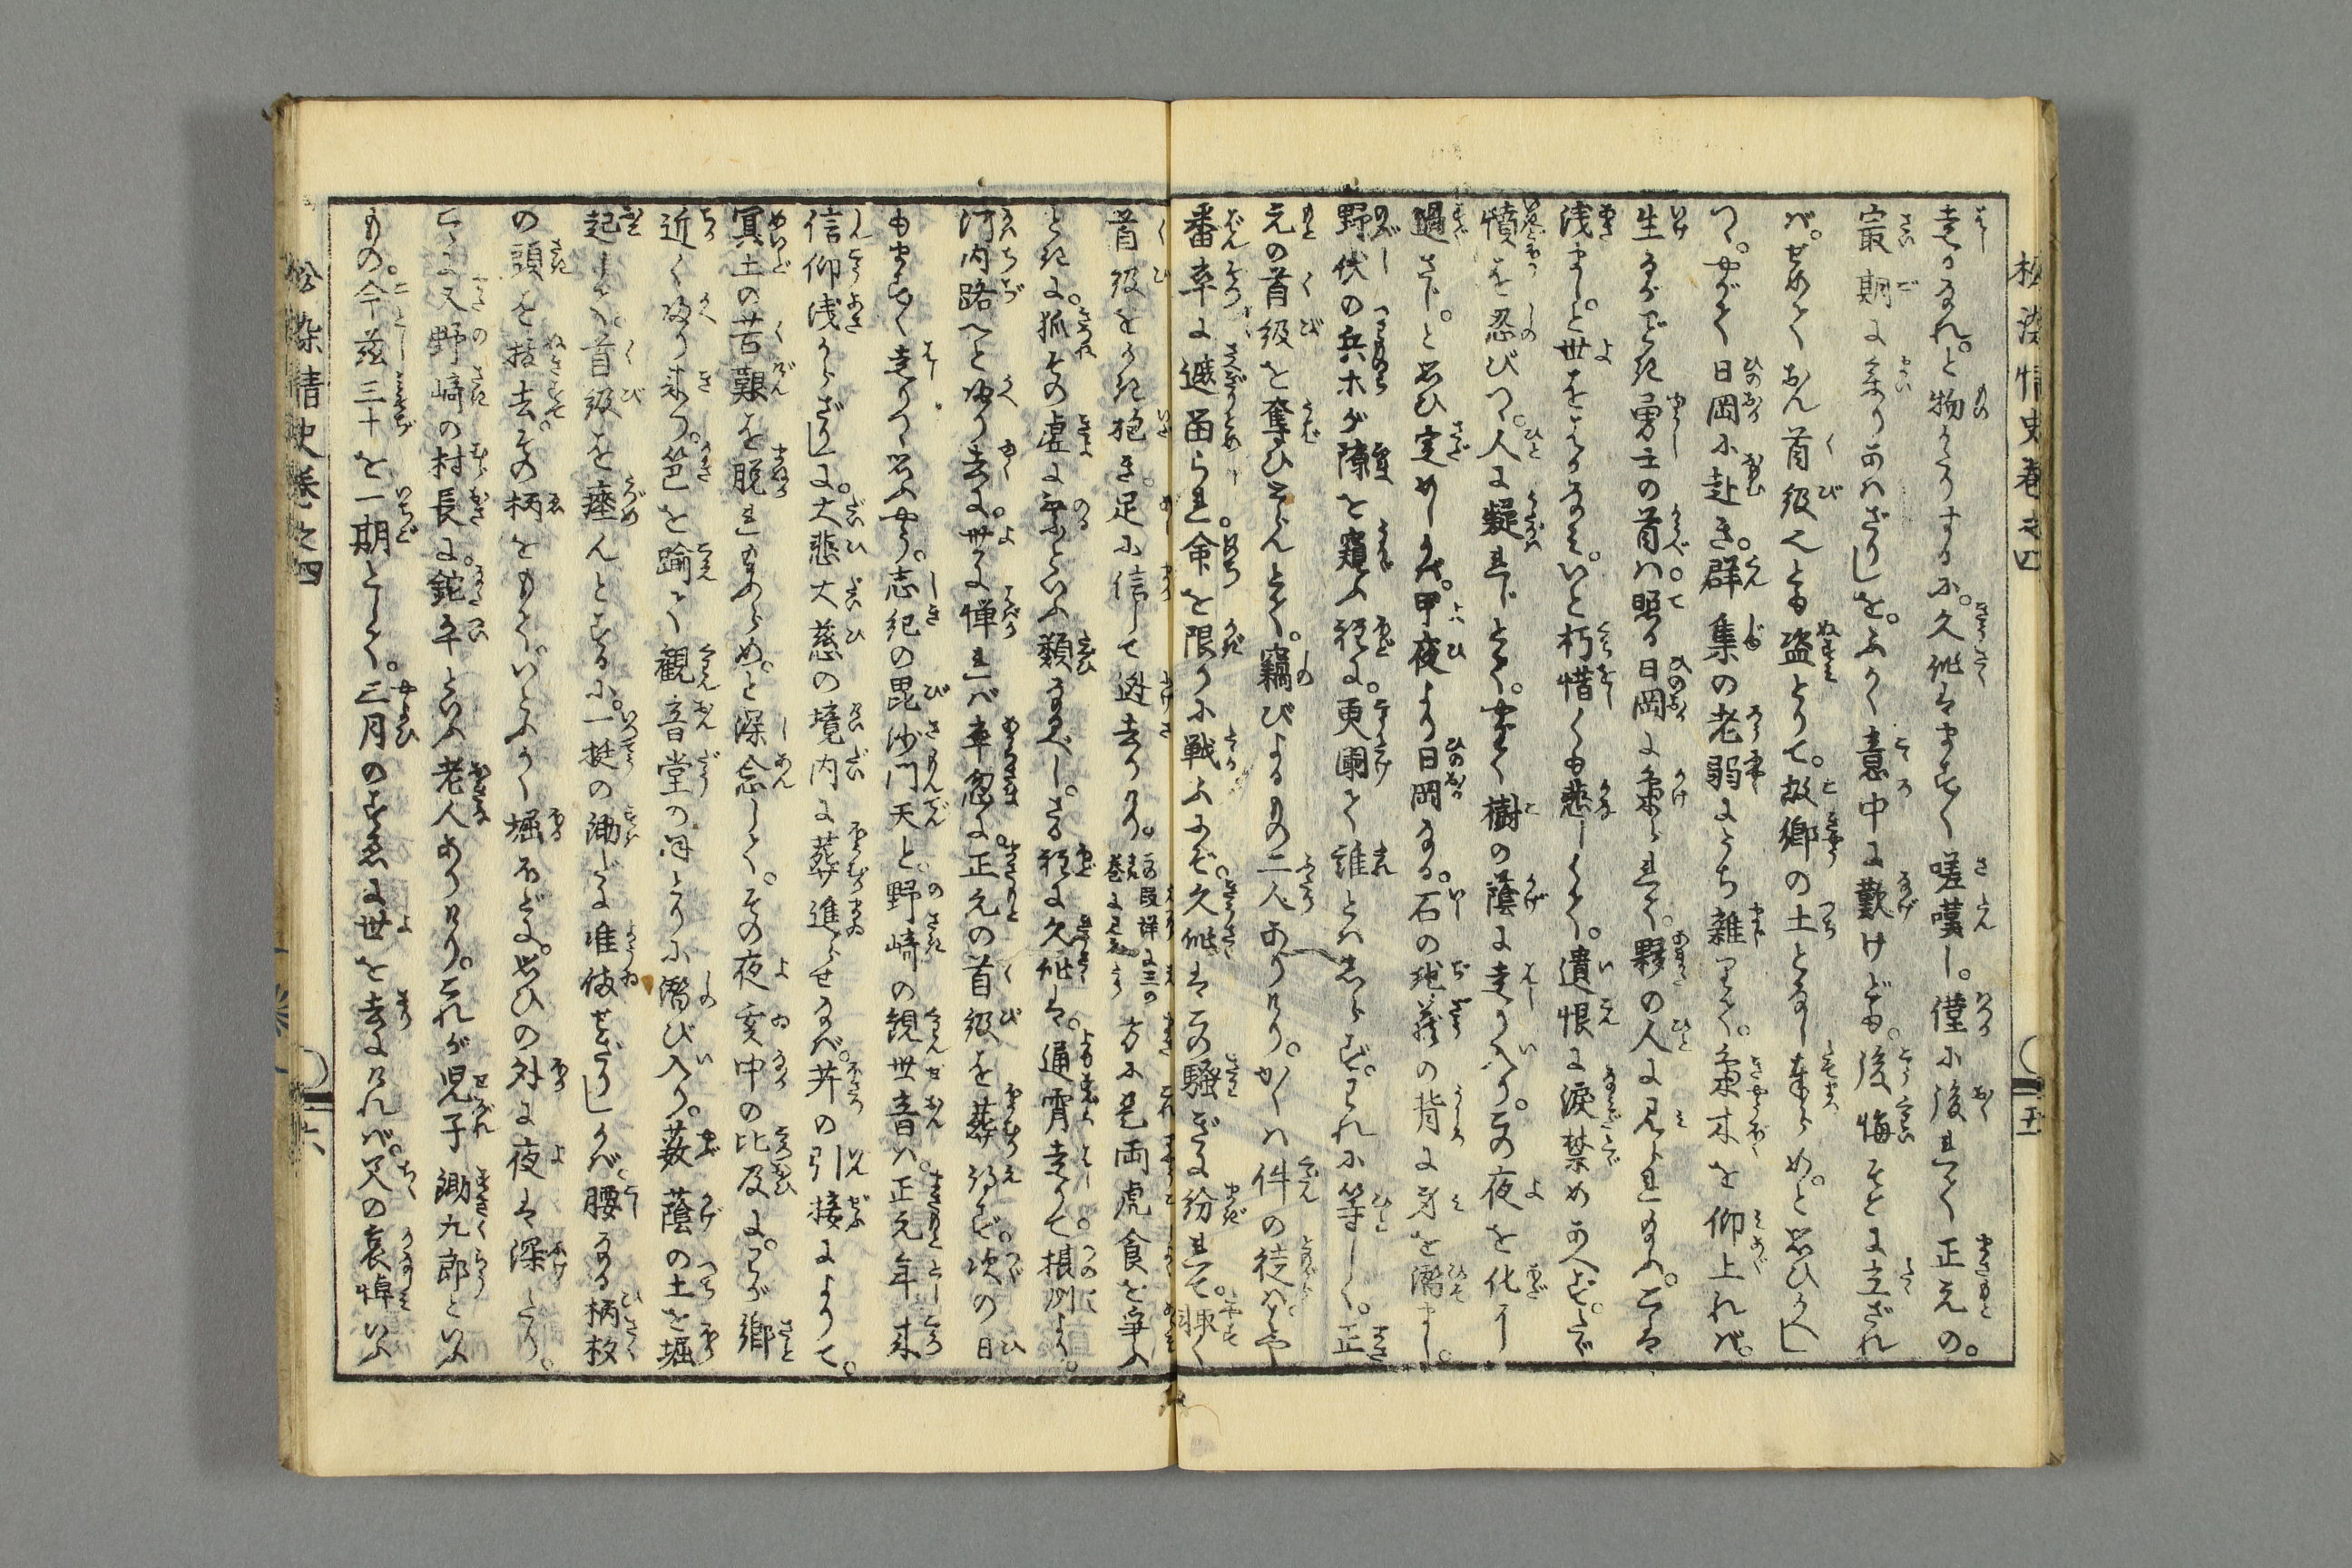 松染情史巻之四
走るなれ。と物がたりするに。久作はますます嗟嘆し。僅に後れて正元の。
最期にまゐりあはざりしを。ふかく意中に歎けども。後悔そこに立ざれ
ば。せめておん首級也とも盗とりて。故郷の土となし奉らめ。と思ひかへし
つゝ。やがて日岡に赴き。群集の老弱にうち雑りて。梟木を仰上れば。
生るがごとき勇士の首は。照る日岡に梟られて。夥の人に見られ給ふ。こは
浅まし。と世をはかなみ。いと朽惜くも悲しくて。遺恨に涙禁めあへず。
憤を忍びつゝ。人に疑れじとて。やがて樹の蔭に走り入り。この夜を化に
過さじ。と思ひ定めしかば。甲夜より日岡なる。石の地蔵の背に身を潜まし。
野伏の兵ホが隙を窺ふ程に。更闌て誰とはしらず。われに等しく。正
元の首級を奪ひとらんとて。竊びよるもの二人ありけり。かくは件の徒は。
番卒に遮畄られ。命を限りに戦ふにぞ。久作はこの騒ぎに紛れて。輙く
五
首級をかき抱き。足に信して迯去りけり。この段詳に三の巻に見えたり
方に是両虎食を争ふ
ときに。狐その虚に乗るといふ類なるべし。さる程に久作は。通宵走りて摂州より。
河内路へと帰り去に。世に憚れば率忽に。正元の首級を葬り得ず。次の日
もますます走りつゝ思ふやう。志紀の毘沙門天と。野崎の観世音は。正元年来
信仰浅からざりしに。大悲大慈の境内に葬進らせなば。并の引接によりて。
冥土の苦艱を脱れ給はめ。と深念しつゝ。その夜亥中の比及に。わが郷
近く帰り来つ。笆を踰て観音堂のほとりに潜び入り。薮蔭の土を堀
起しつゝ。首級を瘞んとするに。一挺の鋤だに准備せざりしかば。腰なる柄杓
の頭を抜去。その柄をもて。いとふかく堀ほどに。思ひの外に夜は深たり。
こゝに又野崎の村長に。鉈平といふ老人ありけり。これが児子鋤九郎といふ
もの。今茲三十を一期として。三月のすゑに世を去にければ。父の哀悼いふ
松染情史巻之四
六